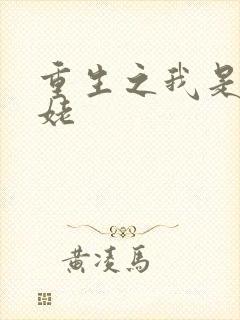 重生之我是
姥
黄凌馬